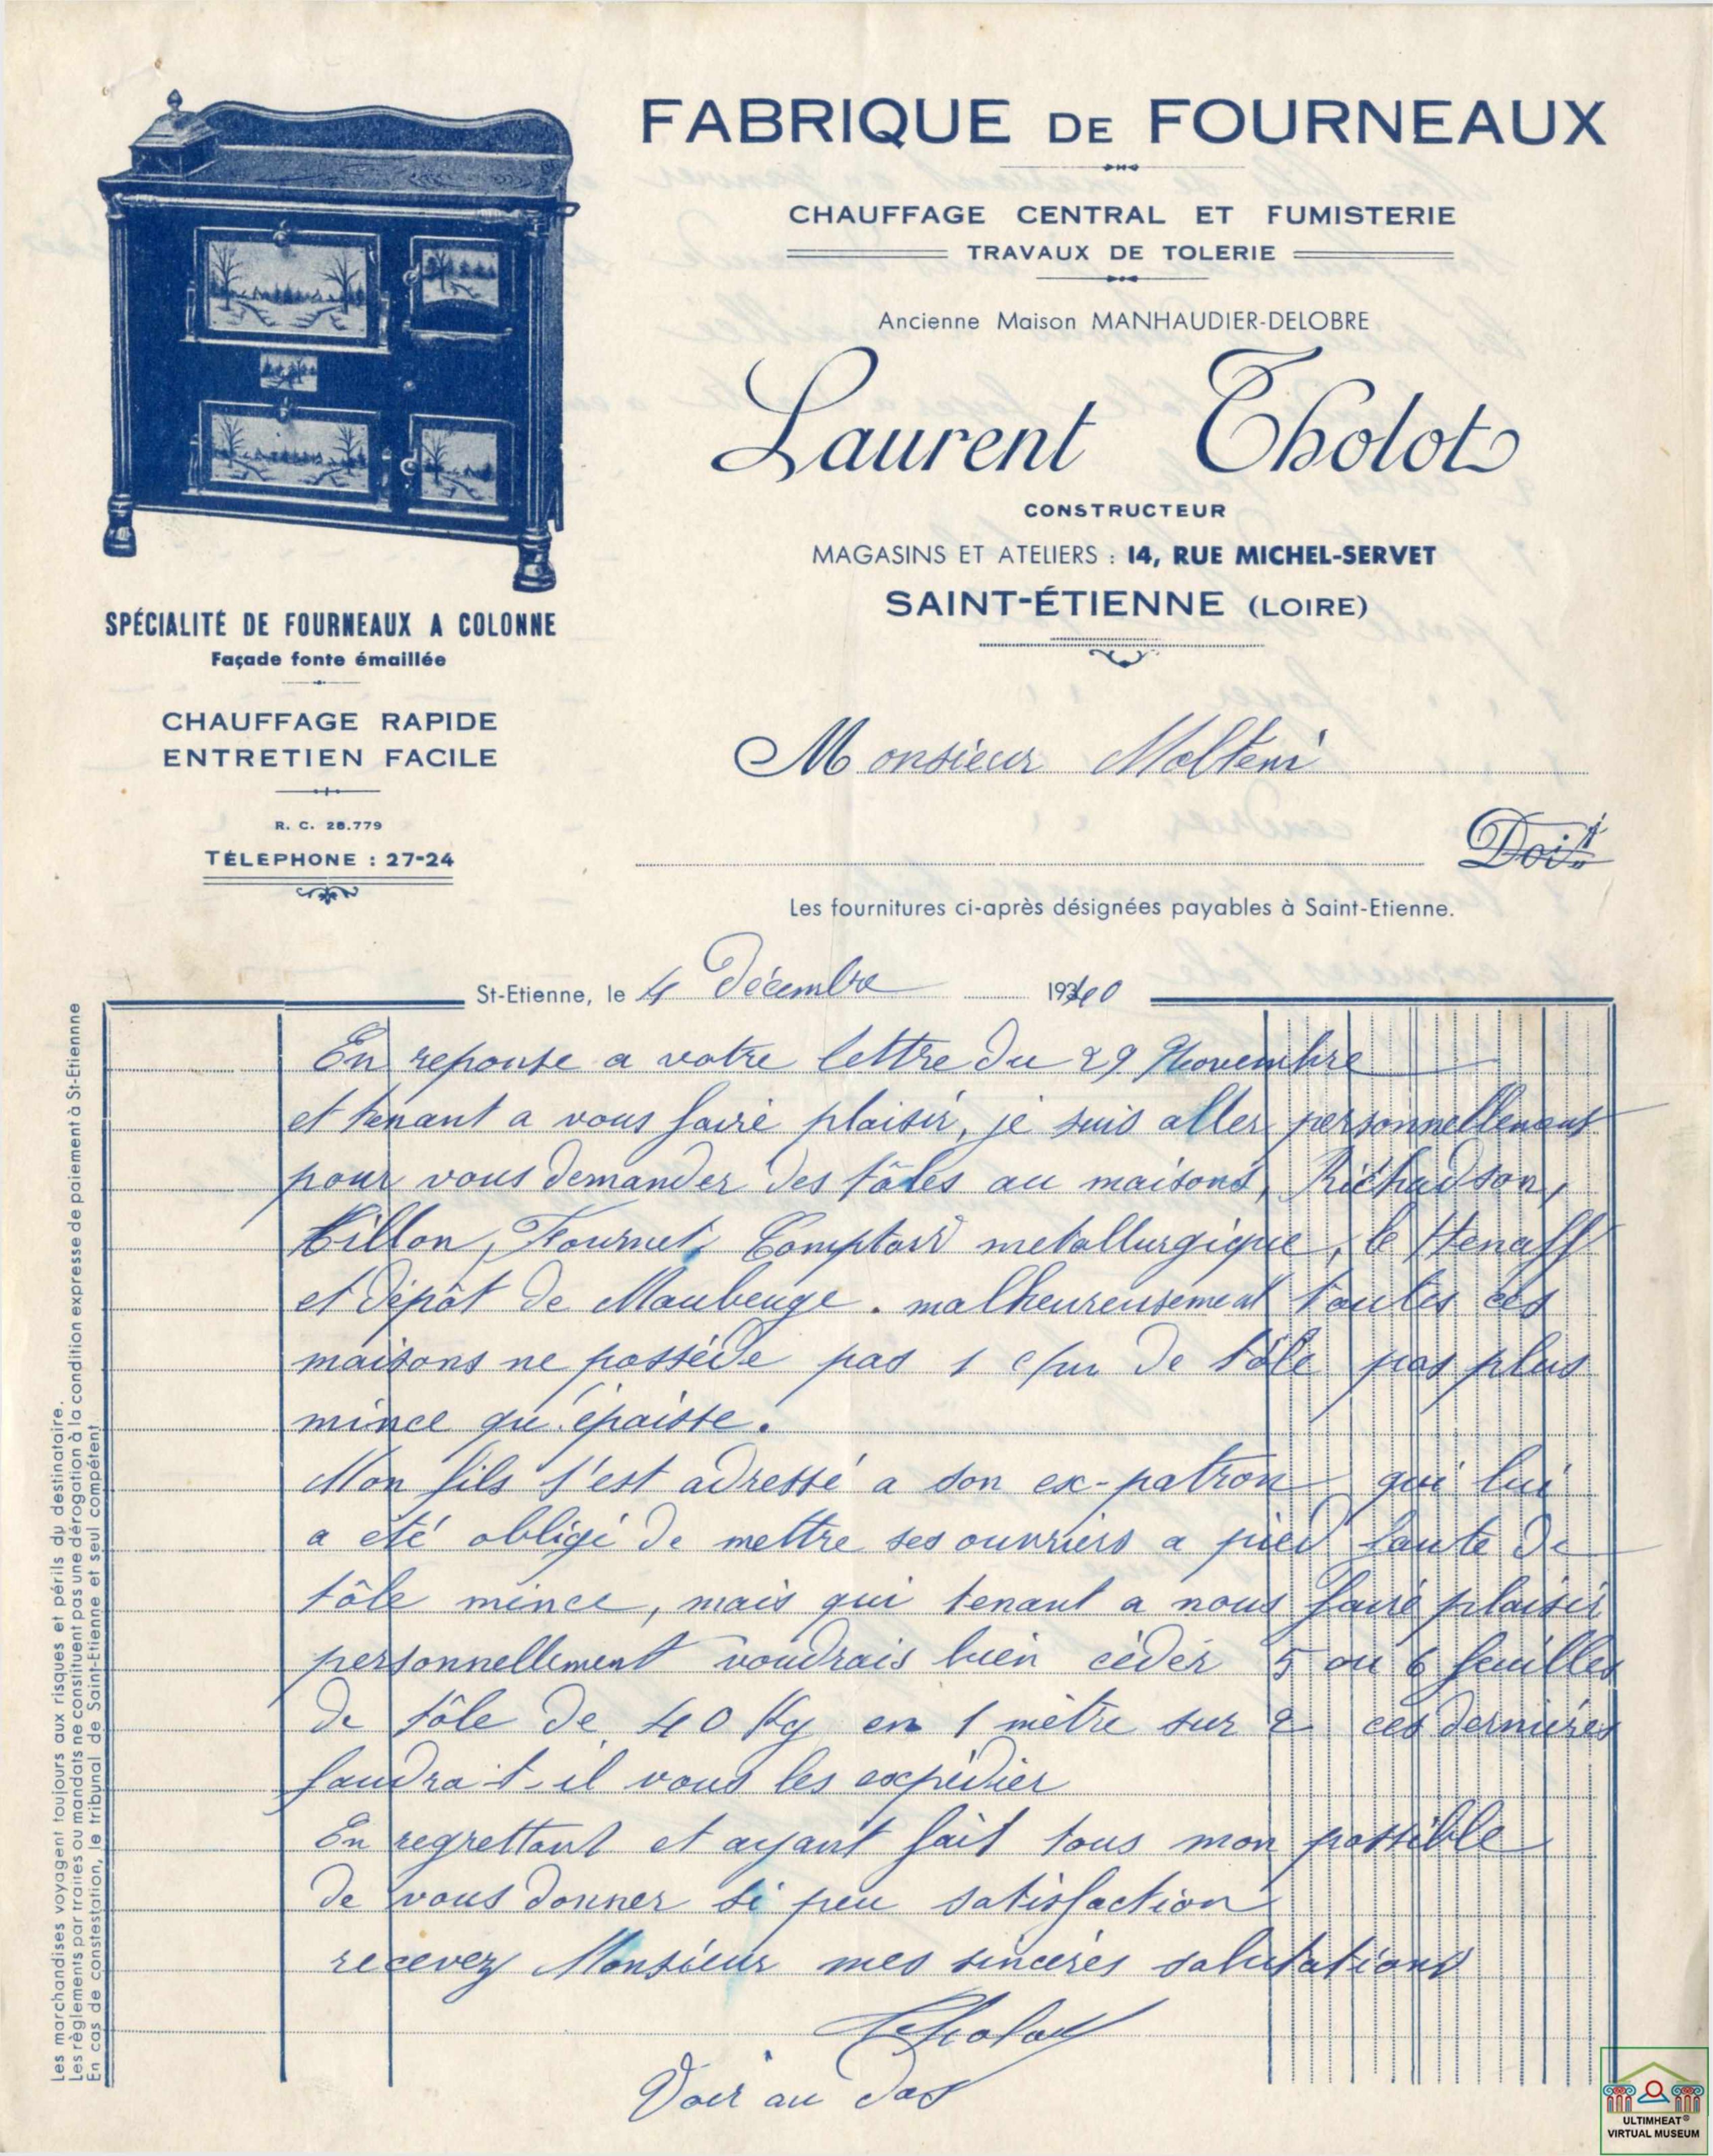 FABRIQUE DE FOURNEAUX
CHAUFFAGE CENTRAL ET FUMISTERIE
TRAVAUX DE TOLERIE
Ancienne Maison MANHAUDIER-DELOBRE
Laurent Tholot
CONSTRUCTEUR
MAGASINS ET ATELIERS : 14, RUE MICHEL-SERVET
SAINT-ÉTIENNE (LOIRE)
SPÉCIALITÉ DE FOURNEAUX A COLONNE
Façade fonte émaillée
CHAUFFAGE RAPIDE
ENTRETIEN FACILE
R. C. 28.779
TÉLÉPHONE : 27-24
Monsieur Molteni
Doit
Les fournitures ci-après désignées payables à Saint-Etienne.
St-Etienne, le 4 Décembre 1940
En reponse a votre lettre du 29 Novembre
et tenant a vous faire plaisir, je suis aller personnellement
pour vous demander des tôles au maisons, Richardson,
Tillon, Fournet, Comptoir metallurgique, le Henaff
et dépôt de Maubeuge. malheureusement toutes ces
maisons ne possède pas 1 c/m de tôle pas plus
mince qu'épaisse.
Mon fils s'est adressé a son ex-patron qui lui
a été obligé de mettre ses ouvriers a pied faute de
tôle mince, mais qui tenant a nous faire plaisir
personnellement voudrais bien céder 5 ou 6 feuilles
de tôle de 40 Kg en 1 mètre sur 2 ces dernières
faudra-t-il vous les expédier
En regrettant et ayant fait tous mon possible
de vous donner si peu satisfaction
recevez Monsieur mes sincères salutations
Tholot
Voir au dos
Les marchandises voyagent toujours aux risques et périls du destinataire.
Les règlements par traites ou mandats ne constituent pas une dérogation à la condition expresse de paiement à St-Etienne
En cas de constestation, le tribunal de Saint-Etienne est seul compétent
ULTIMHEAT®
VIRTUAL MUSEUM